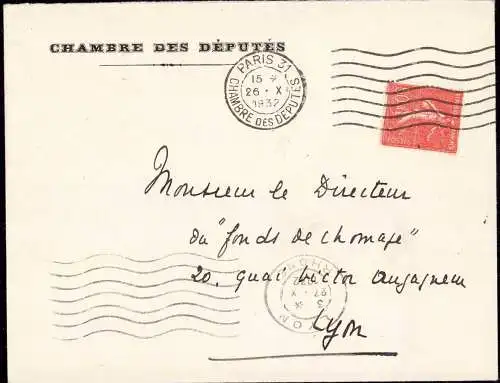 CHAMBRE DES DÉPUTÉS
PARIS 31
15
26 · X
1932
CHAMBRE DES DÉPUTÉS
Monsieur le Directeur
du "fonds de chomage"
20, quai Victor Augagneur
Lyon
LYON
27 X